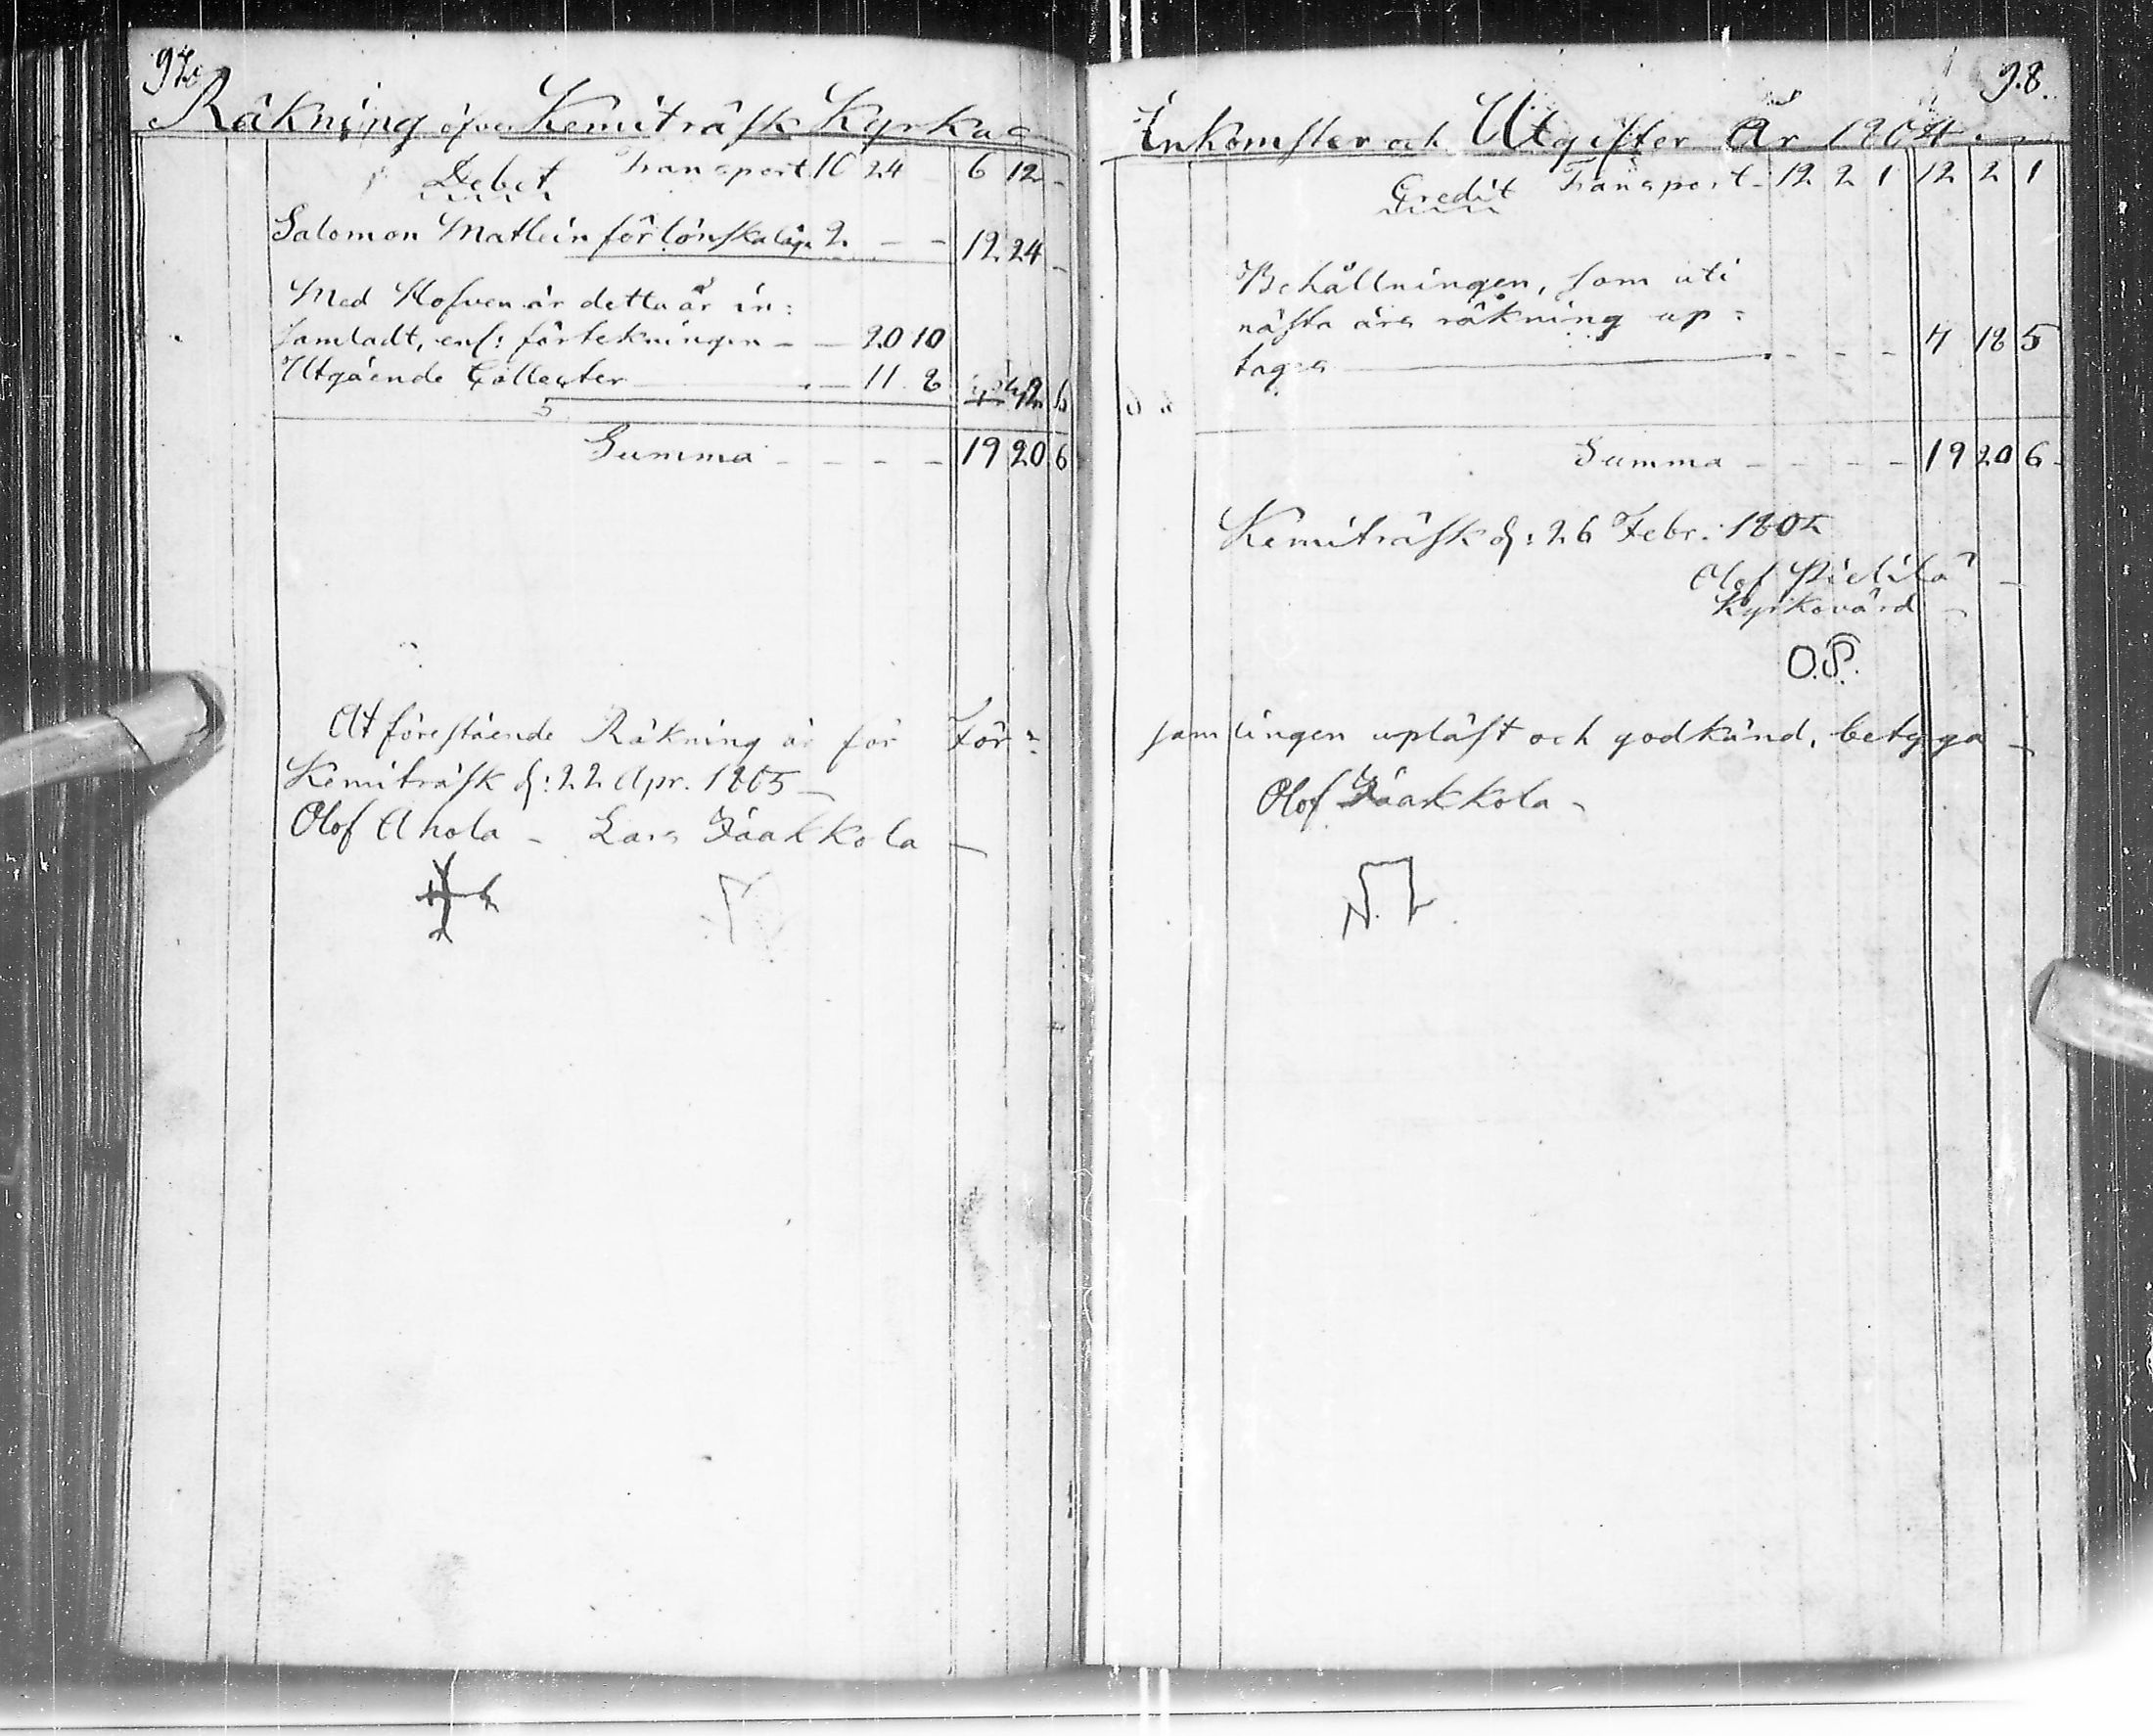 97.
Räkning öfver Kemiträsk Kyrkas
Debet Transport 10 24 6 12 -
Salomon Matlein för lönskaläge 2. - - 12 24 -
Med Hofven är detta år in:
samladt, enl: förtekningen - - 20 10
Utgående Collecter - 11. 8
Summa - - - - 19 20 6
At förestående Räkning är för För=
Kemiträsk d: 22 Apr. 1805
Olof Ahola - Lars Jaakkola
98.
Inkomster och Utgifter År 1804.
Credit Transport - 12 2 1 12 2 1
Behållningen, som uti
nästa års räkning up=
tages - - - 7 18 5
Summa - - - - 19 20 6
Kemiträsk d: 26 Febr. 1805
Olof
Kyrkovärd
O.P.
samlingen upläst och godkänd, betyga
Olof Jaakkola